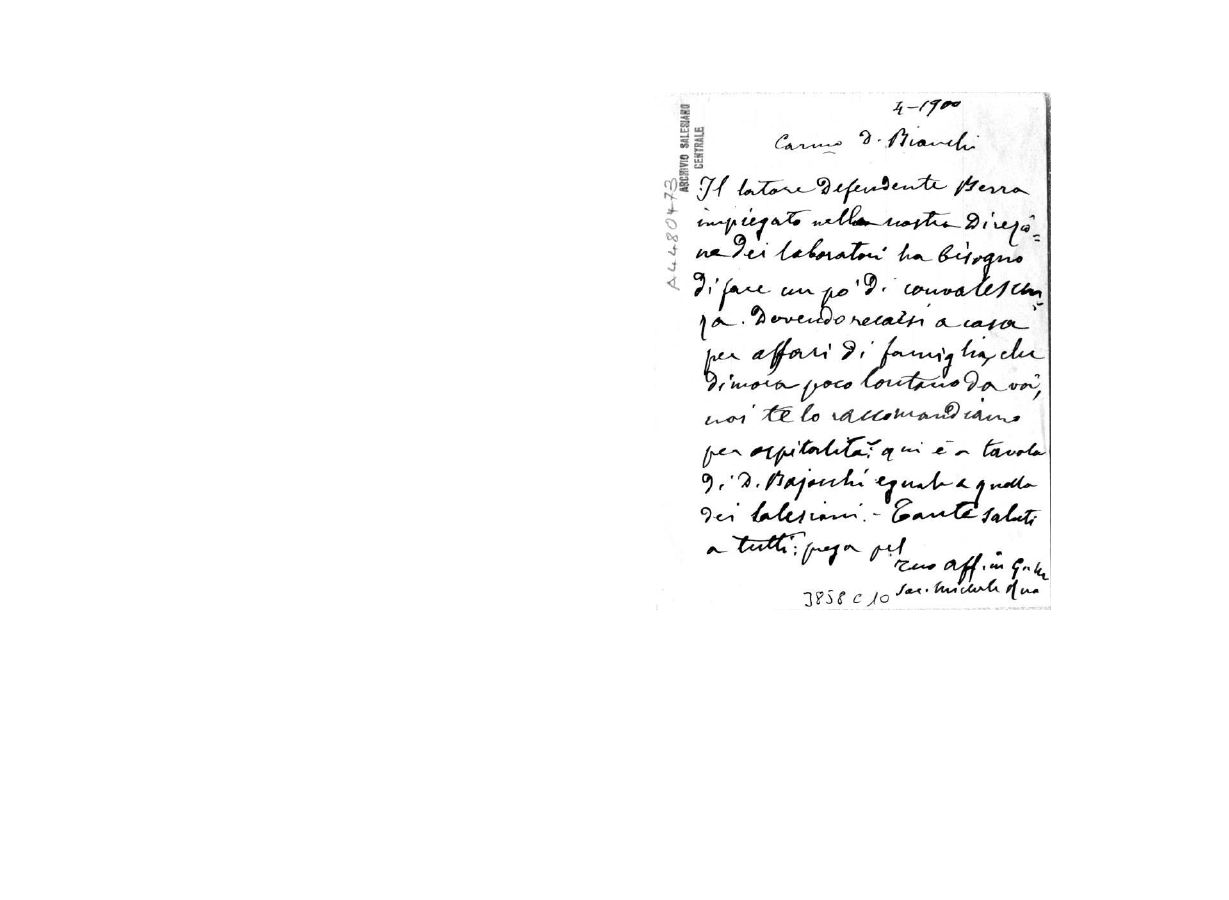 4-1900
Carmo D. Bianchi
Il latore Defendente Berra
impiegato nella nostra Direzio=
ne dei laboratori ha bisogno
di fare un po' di convalescen=
za. Dovendo recarsi a casa
per affari di famiglia, che
dimora poco lontano da voi,
noi te lo raccomandiamo
per ospitalità: qui è a tavola
di D. Bajocchi eguale a quella
dei Salesiani. - Tanti saluti
a tutti: prega pel
tuo aff. in G.
Sac. Michele Rua
3858 C 10
ARCHIVIO SALESIANO
CENTRALE
A4480473